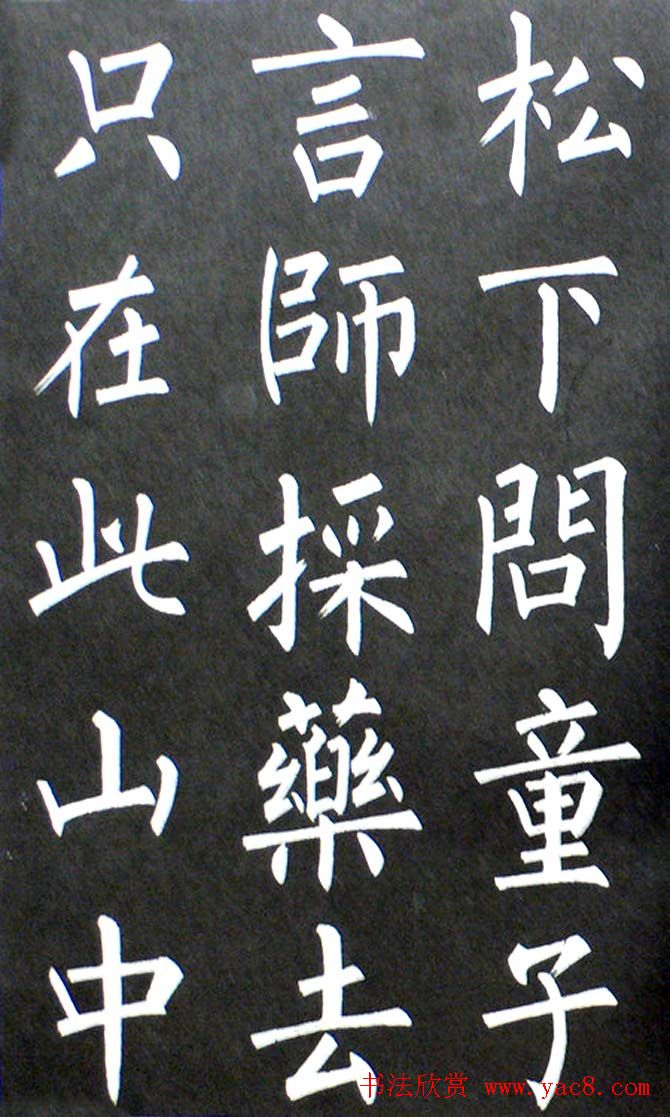 松下問童子
言師採藥去
只在此山中
书法欣赏 www.yac8.com